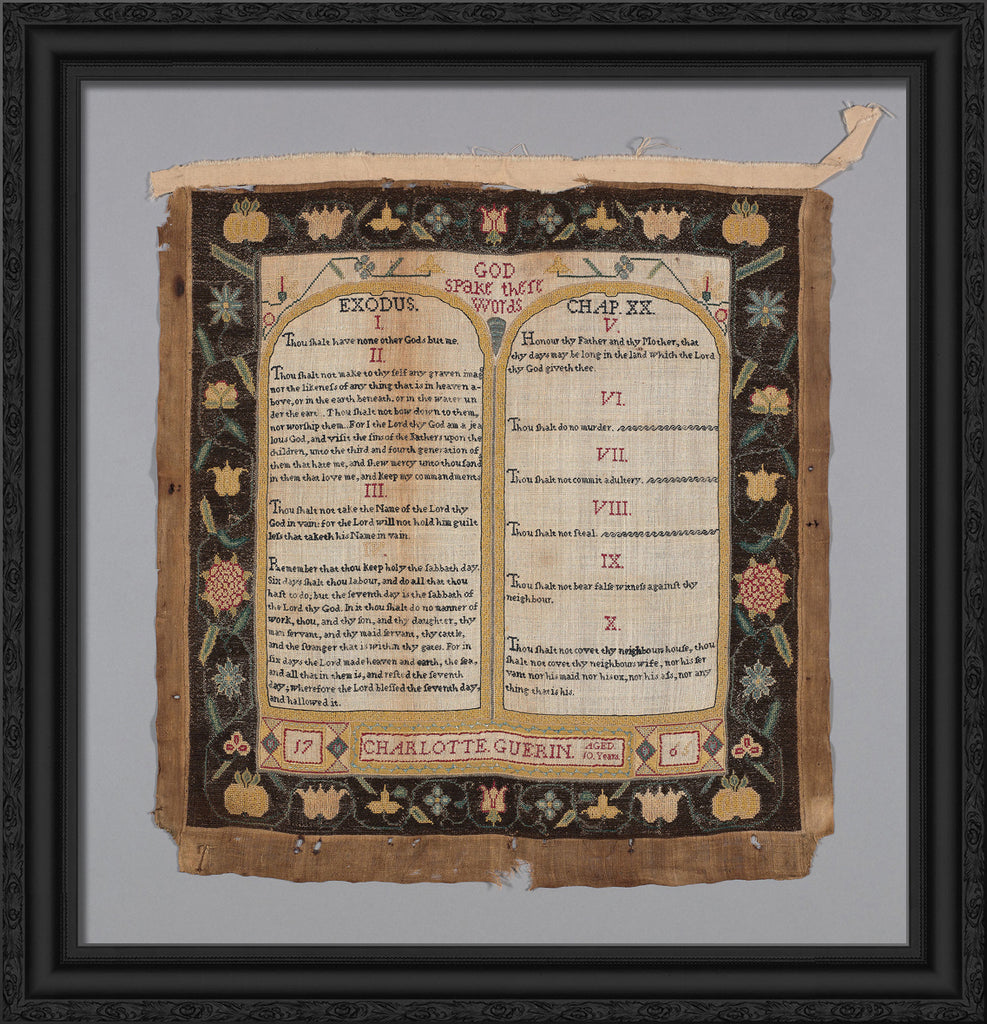 GOD
Spake theſe
Words
EXODUS.
I.
Thou ſhalt have none other Gods but me.
II.
Thou ſhalt not make to thy ſelf any graven imag
nor the likeneſs of any thing that is in heaven a-
bove, or in the earth beneath, or in the water un
der the eart... Thou ſhalt not bow down to them,
nor worſhip them... For I the Lord thy God am a jea
lous God, and viſit the ſins of the Fathers upon the
children, unto the third and fourth generation of
them that hate me, and ſhew mercy unto thouſand
in them that love me, and keep my commandments
III.
Thou ſhalt not take the Name of the Lord thy
God in vain: for the Lord will not hold him guilt
leſs that taketh his Name in vain.
Remember that thou keep holy the ſabbath day.
Six days ſhalt thou labour, and do all that thou
haſt to do; but the ſeventh day is the ſabbath of
the Lord thy God. In it thou ſhalt do no manner of
work, thou, and thy ſon, and thy daughter, thy
man ſervant, and thy maid ſervant, thy cattle,
and the ſtranger that is within thy gates. For in
ſix days the Lord made heaven and earth, the ſea,
and all that in them is, and reſted the ſeventh
day; wherefore the Lord bleſſed the ſeventh day,
and hallowed it.
CHAP. XX.
V.
Honour thy Father and thy Mother, that
thy days may be long in the land which the Lord
thy God giveth thee.
VI.
Thou ſhalt do no murder.
VII.
Thou ſhalt not commit adultery.
VIII.
Thou ſhalt not ſteal.
IX.
Thou ſhalt not bear falſe witneſs againſt thy
neighbour.
X.
Thou ſhalt not covet thy neighbours houſe, thou
ſhalt not covet thy neighbours wife, nor his ſer
vant nor his maid nor his ox, nor his aſs, nor any
thing that is his.
17 CHARLOTTE GUERIN. AGED 10. Years 6